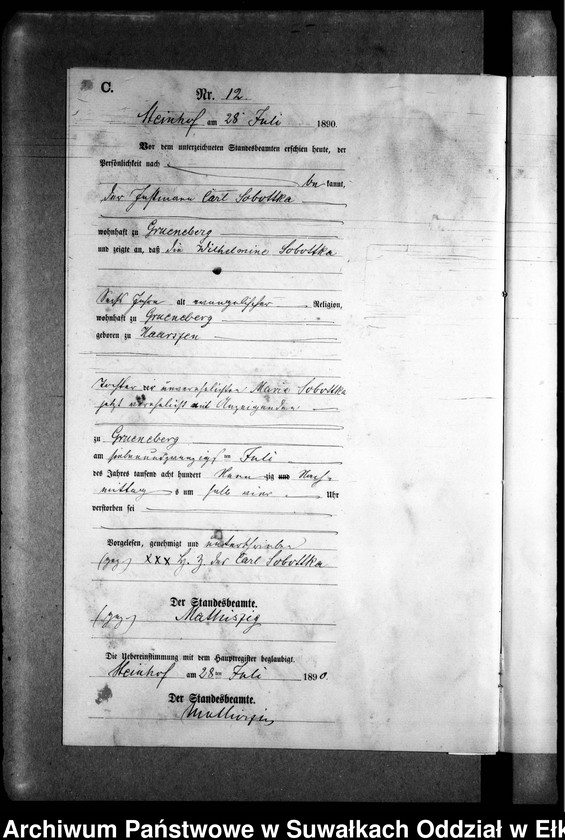 C.
Nr. 12.
Steinhof am 28 Juli 1890.
Vor dem unterzeichneten Standesbeamten erschien heute, der
Persönlichkeit nach
be kannt,
der Instmann Carl Sobottka
wohnhaft zu Grueneberg
und zeigte an, daß die Wilhelmine Sobottka
Sechs Jahre alt evangelischer Religion,
wohnhaft zu Grueneberg
geboren zu Haarszen
Tochter der unverehelichten Marie Sobottka
jetzt verehelicht mit Anzeigenden
zu Grueneberg
am siebenundzwanzigsten Juli
des Jahres tausend acht hundert Neun zig und Nach-
mittag s um halb vier Uhr
verstorben sei
Vorgelesen, genehmigt und unterschrieben
(gez) XXX H. Z. des Carl Sobottka
Der Standesbeamte.
(gez)
Die Uebereinstimmung mit dem Hauptregister beglaubigt.
Steinhof am 28ten Juli 1890.
Der Standesbeamte.
Archiwum Państwowe w Suwałkach Oddział w Ełk